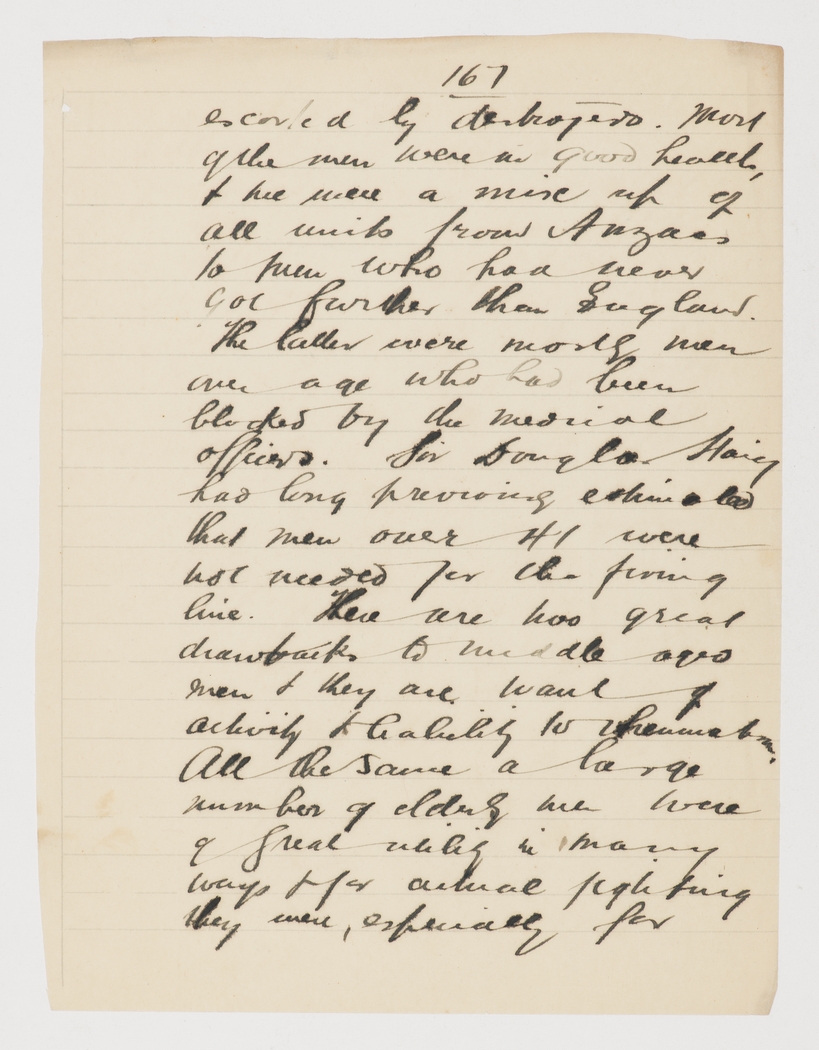 167
escorted by destroyers. Most
of the men were in good health,
& we were a mix up of
all units from Anzacs
to men who had never
got further than England.
The latter were mostly men
over age who had been
blocked by the medical
officers. Sir Douglas Haig
had long previously estimated
that men over 41 were
not needed for the firing
line. There are two great
drawbacks to middle aged
men & they are want of
activity & liability to rheumatism.
All the same a large
number of elderly men were
of great utility in many
ways & for actual fighting
they were, especially for